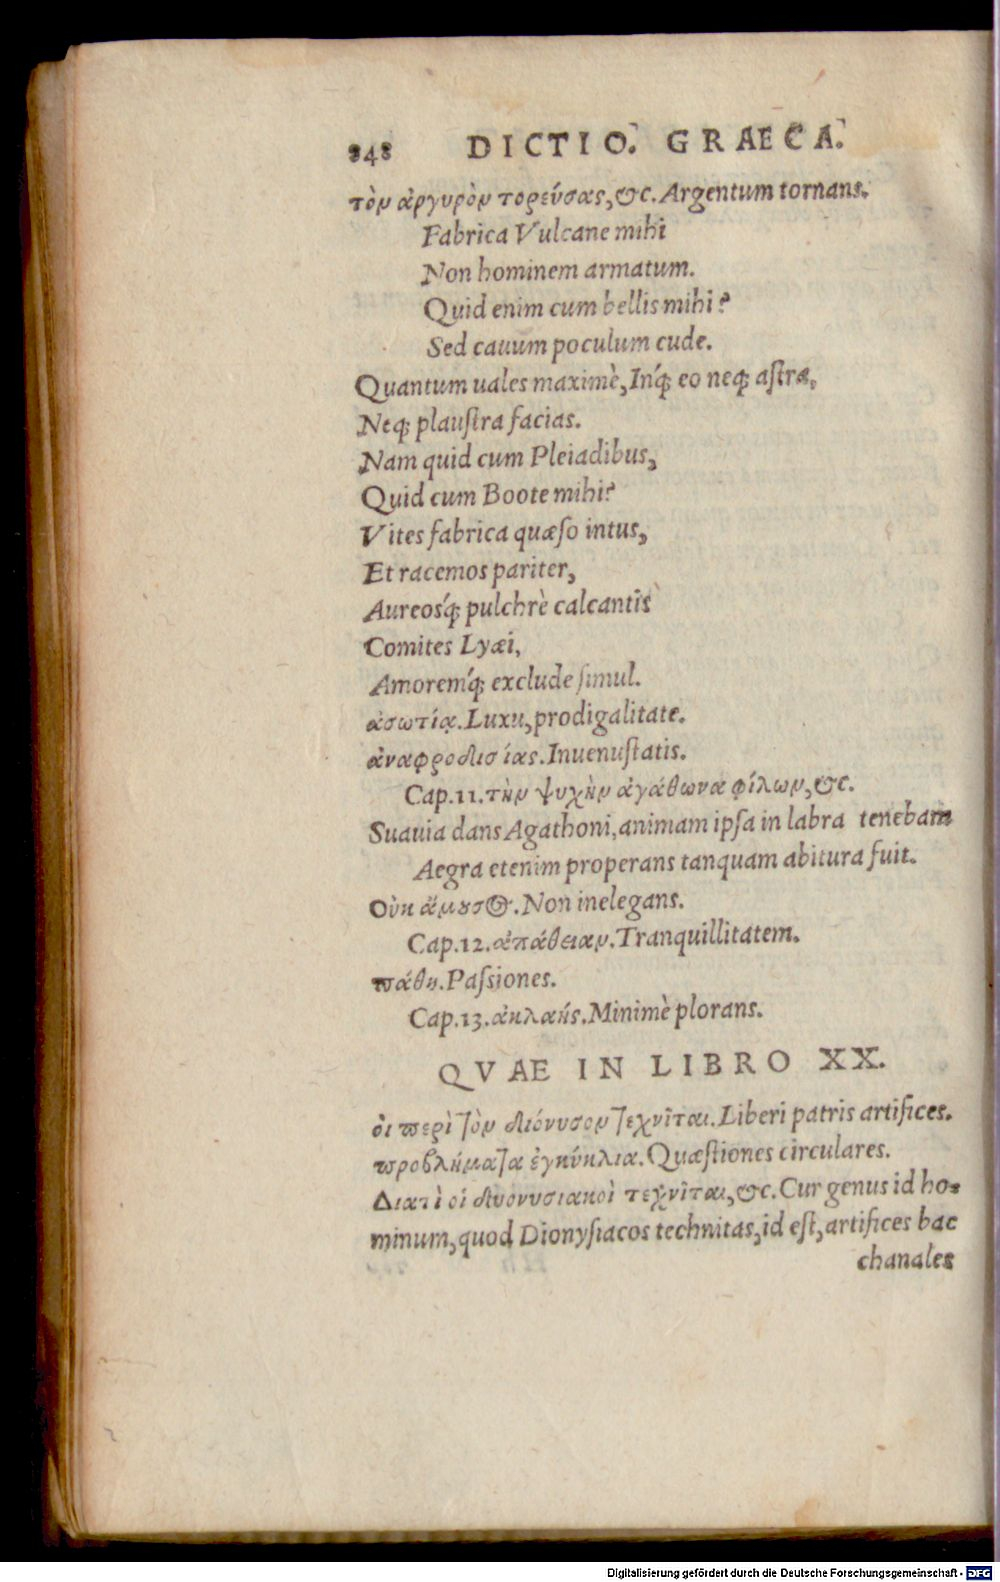 848 DICTIO. GRAECA.
τὸν ἀργυρὸν τορεύσας, &c. Argentum tornans.
Fabrica Vulcane mihi
Non hominem armatum.
Quid enim cum bellis mihi?
Sed cauum poculum cude.
Quantum uales maximè, Inq́; eo neq; aſtra,
Neq; plauſtra facias.
Nam quid cum Pleiadibus,
Quid cum Boote mihi?
Vites fabrica quæſo intus,
Et racemos pariter,
Aureosq́; pulchrè calcantis
Comites Lyæi,
Amoremq́; exclude ſimul.
ἀσωτίᾳ. Luxu, prodigalitate.
ἀναφροδισίας. Inuenuſtatis.
Cap.11. τὴν ψυχὴν ἀγάθωνα φίλων, &c.
Suauia dans Agathoni, animam ipſa in labra tenebam
Aegra etenim properans tanquam abitura fuit.
Οὐκ ἄμουσος. Non inelegans.
Cap.12. ἀπάθειαν. Tranquillitatem.
πάθη. Paſsiones.
Cap.13. ἀκλαής. Minimè plorans.
QVAE IN LIBRO XX.
οἱ περὶ τὸν διόνυσον τεχνῖται. Liberi patris artifices.
προβλήματα ἐγκύκλια. Quæſtiones circulares.
Διατὶ οἱ δυονυσιακοὶ τεχνῖται, &c. Cur genus id ho-
minum, quod Dionyſiacos technitas, id eſt, artifices bac
chanales
Digitalisierung gefördert durch die Deutsche Forschungsgemeinschaft - DFG